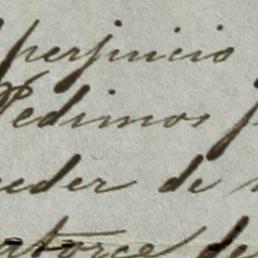 perjuicio
Pedimos
ceder de
catorce de